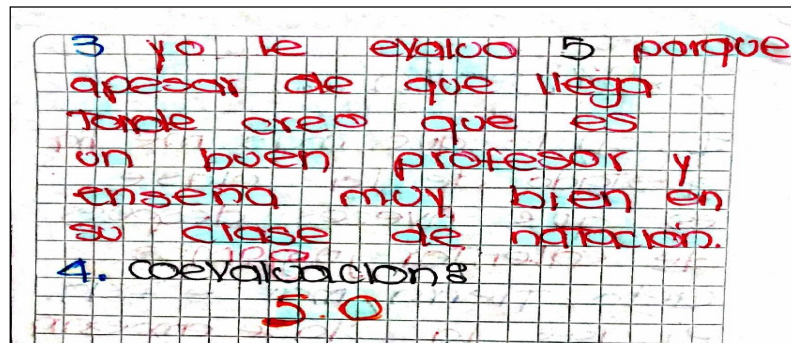 3 yo le evaluo 5 porque
apesar de que llega
Tarde creo que es
un buen profesor y
enseña muy bien en
su clase de natación.
4. coevaluación:
5.0